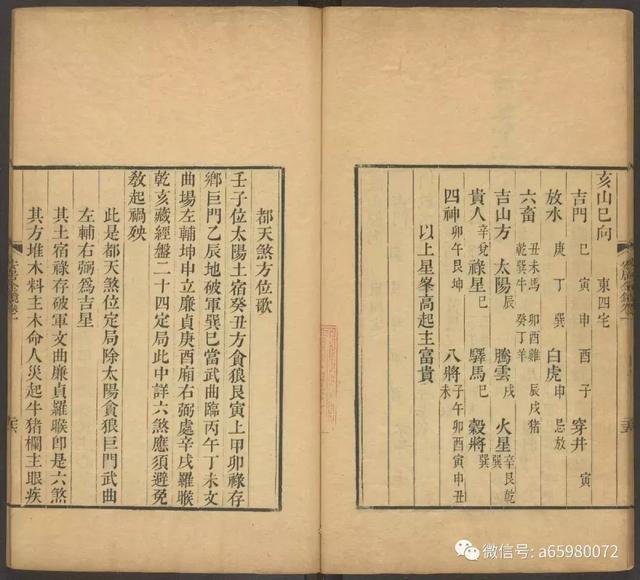 亥山巳向 東四宅
吉門 巳 寅 申 酉 子 穿井 寅
放水 庚 丁 巽 白虎 申 忌放
六畜 丑未馬 卯酉雞 辰戌猪 乾巽牛 癸丁羊
吉山方 太陽 辰 騰雲 戌 火星 辛艮乾巽
貴人 辛兌 祿星 巳 驛馬 巳 穀將 巽
四神 卯午艮坤 八將 子午卯酉寅申丑未
以上星峯高起主富貴
都天煞方位歌
壬子位太陽土宿癸丑方貪狼艮寅上甲卯祿存
鄉巨門乙辰地破軍巽巳當武曲臨丙午丁未文
曲場左輔坤申立廉貞庚酉廂右弼處辛戌羅睺
乾亥藏經盤二十四定局此中詳六煞應須避免
教起禍殃
此是都天煞位定局除太陽貪狼巨門武曲
左輔右弼爲吉星
其土宿祿存破軍文曲廉貞羅睺卽是六煞
其方堆木料主木命人災起牛猪欄主眼疾
微信号: a65980072